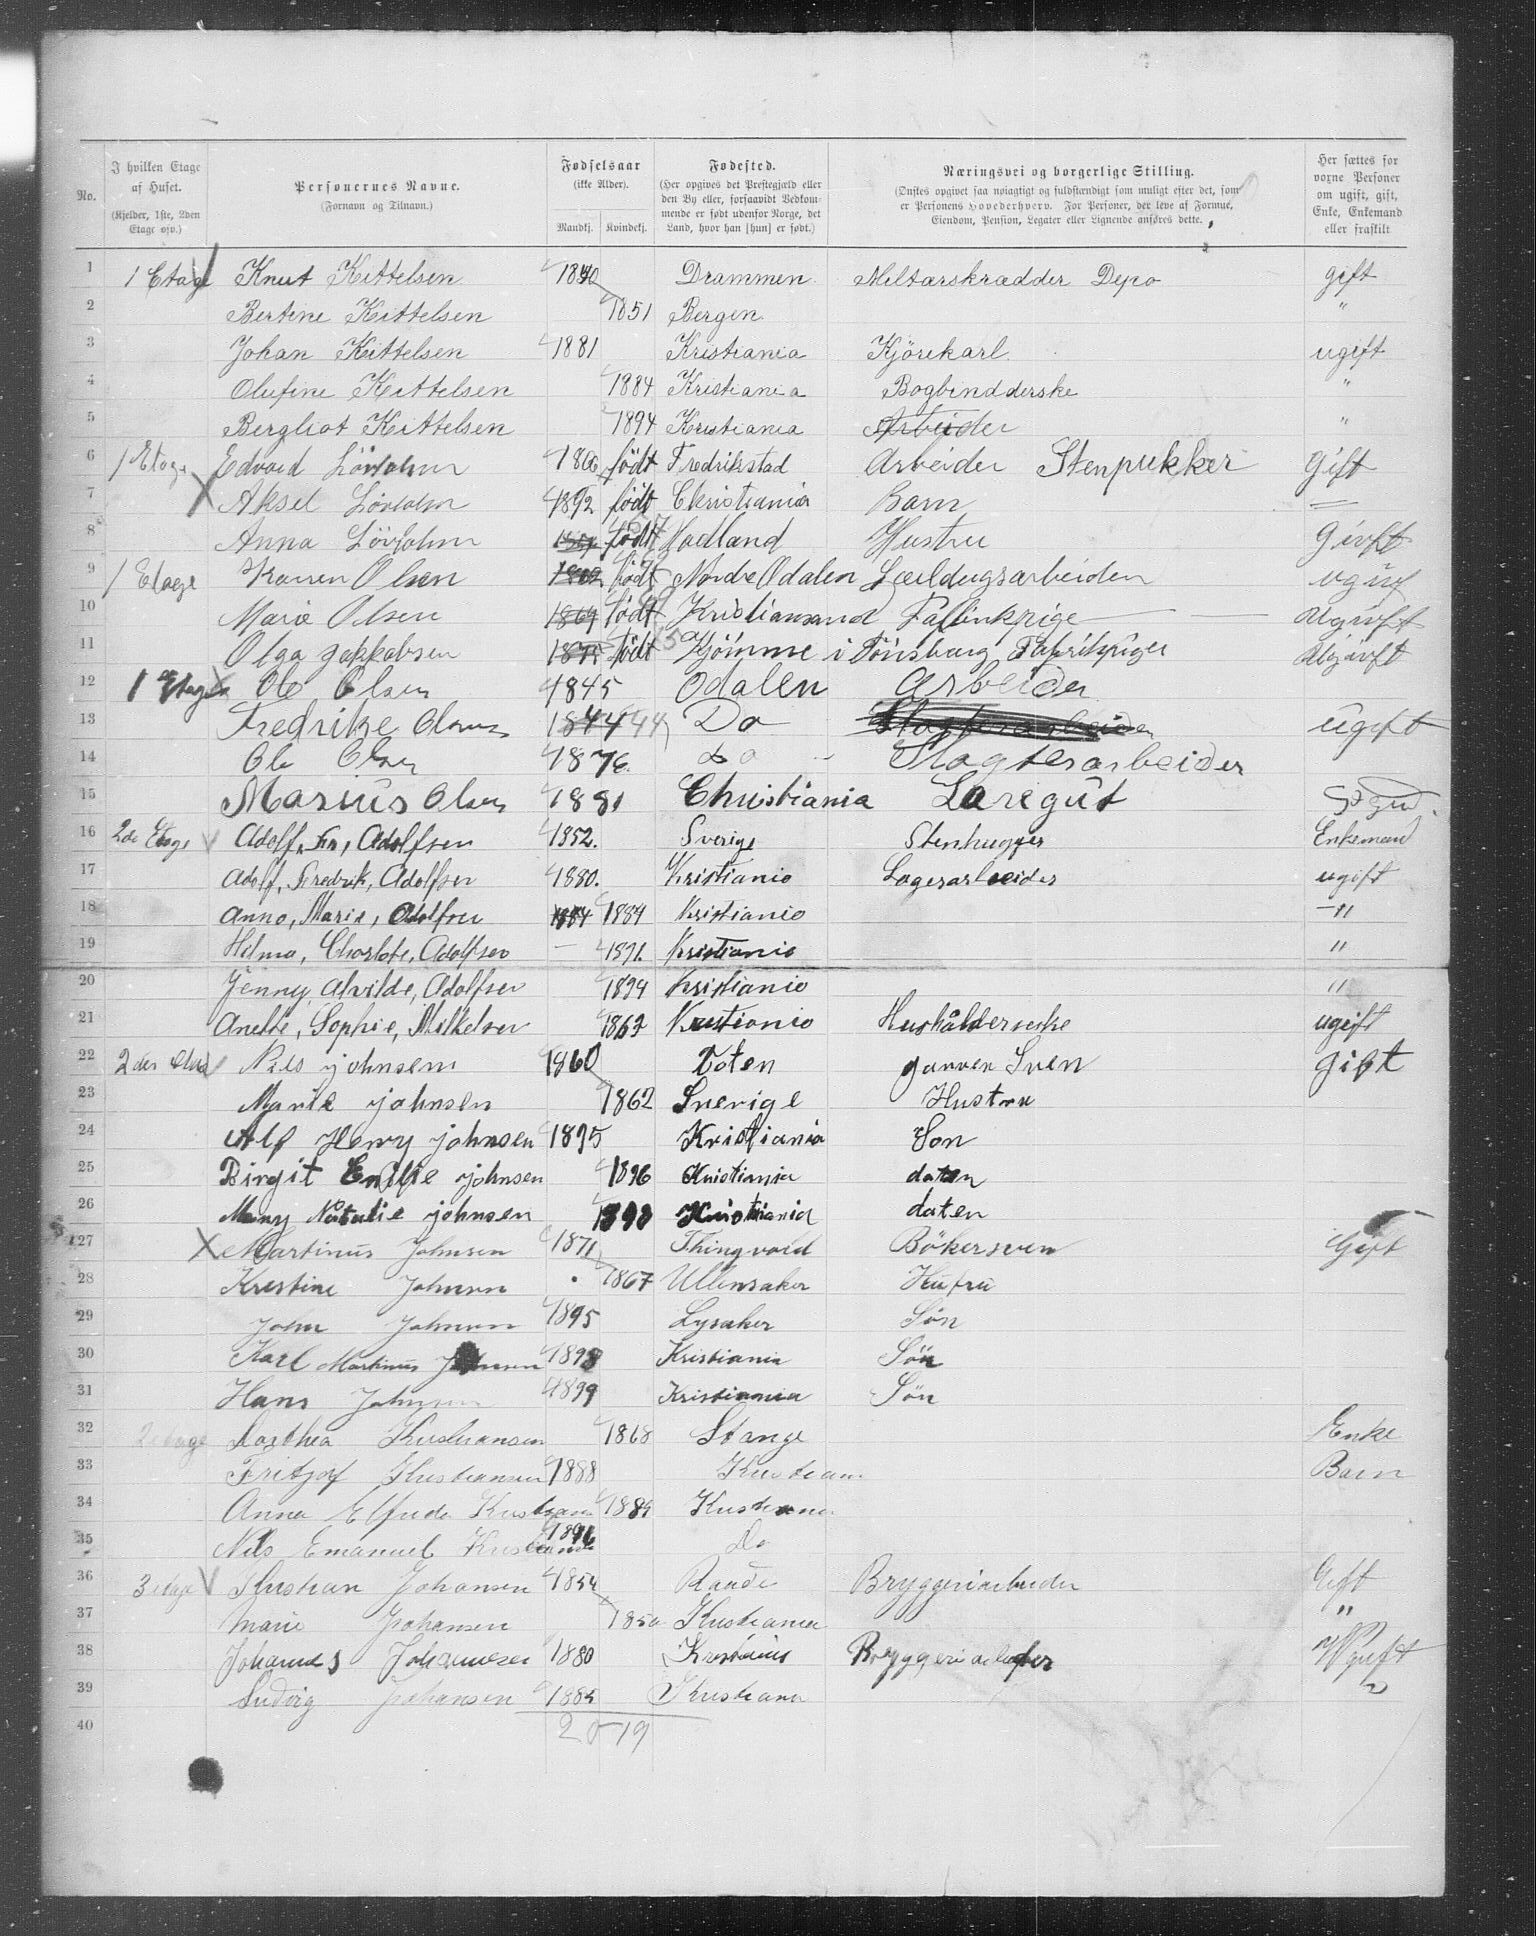 No. | I hvilken Etage af Huset. (Kjelder, 1ste, 2den Etage osv.) | Personernes Navne. (Fornavn og Tilnavn.) | Fødselsaar (ikke Alder). Mandkj. Kvindekj. | Fødested. (Her opgives det Prestegjæld eller den By eller, forsaavidt Vedkommende er født udenfor Norge, det Land, hvor han [hun] er født.) | Næringsvei og borgerlige Stilling. (Ønskes opgivet saa nøiagtigt og fuldstændigt som muligt efter det, som er Personens Hovederhverv. For Personer, der leve af Formue, Eiendom, Pension, Legater eller Lignende anføres dette. | Her sættes for voxne Personer om ugift, gift, Enke, Enkemand eller fraskilt
1 1 Etage Knut Kittelsen 1840 Drammen Meltarskrædder Depo gift
2 Bertine Kittelsen 1851 Bergen "
3 Johan Kittelsen 1881 Kristiania Kjörekarl ugift
4 Olufine Kittelsen 1884 Kristiania Bogbindderske "
5 Bergliot Kittelsen 1894 Kristiania Arbeider "
6 1 Etage Edvard Lövholm 1866 födt Fredrikstad Arbeider Stenpukker Gift
7 Aksel Lövholm 1892 födt Christiania Barn
8 Anna Lövholm födt Hustru Givft
9 1 Etage Karen Olsen 1862 födt Nordre Odalen ugivf
10 Marie Olsen 1869 födt Kristiansand Ugivft
11 Olga Jakkobsen 1875 födt Kjömme i Tönsbarg Fabrikpiger Ugivft
12 1 Etage Ole Olsen 1845 Odalen Arbeider
13 Fredrike Olsen 1844 44 Do Slagterarbeider ugift
14 Ole Olsen 1876 do Slagterarbeider
15 Marius Olsen 1881 Christiania Laregut
16 2de Etage Adolf, Fr, Adolfsen 1852. Sverige Stenhugger Enkemand
17 Adolf, Fredrik, Adolfsen 1880. Kristianio Lagerarbeider ugift
18 Anna, Marie, Adolfsen 1884 1884 Kristianio - "
19 Hilma, Charlotte, Adolfsen - 1891. Kristianio "
20 Jenny, Alvilde, Adolfsen 1894 Kristianio "
21 Anette, Sophie, Mikkelsen 1863 Kristianio Husholderseske ugift
22 2den etage Nils johnsen 1860 Toten garver Sven gift
23 Marie johnsen 1862 Sverige Hustru
24 Alf Henry johnsen 1895 Kristiania Son
25 Birgit Emilie johnsen 1896 Kristiania daten
26 Mary Natalie johnsen 1898 Kristiania daten
27 Martinus Johnsen 1871 Thingvold Bökersven Gift
28 Kristine Johnsen 1867 Ullensaker Hufru
29 John Johnsen 1895 Lysaker Sön
30 Karl Martinus Johnsen 1898 Kristiania Sön
31 Hans Johnsen 1899 Kristiania Sön
32 2 etage Dorthea Kristiansen 1868 Stange Enke
33 Fritjof Kristiansen 1888 Kristiania Barn
34 Anna Elfrida Kristiansen 1889 Kristiania
35 Nils Emanuel Kristiansen 1896 Do
36 3 etage Kristian Johansen 1854 Raade Bryggeriarbeider Gift
37 Marie Johansen 1850 Kristiania "
38 Johannes Johannesen 1880 Kristiania Bryggeriarbeider Ugift
39 Ludvig Johansen 1885 Kristiania
40 20 19